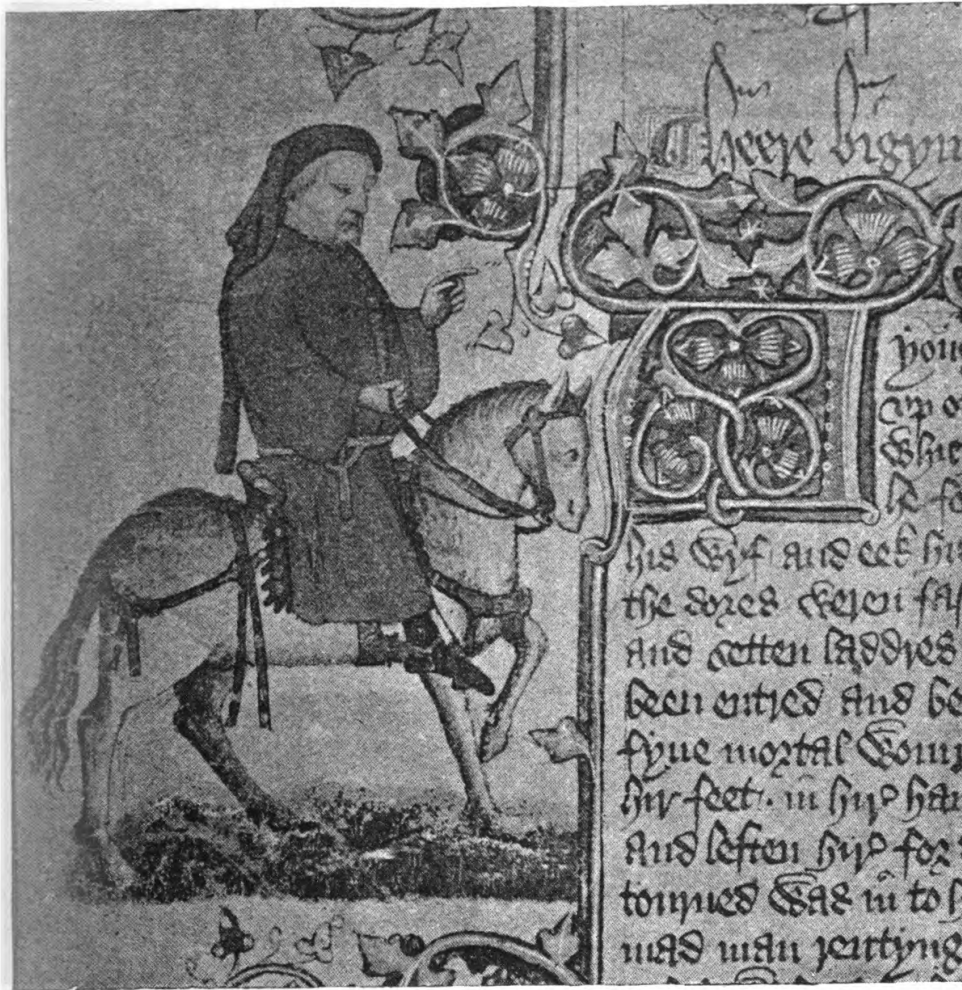 heere bigyn
youg
vp o
Whic
he fo
his Wyf and eek hir
the dores weren fas
and setten laddres
been entred and be
fyue mortal Wou
hir feet. in hir han
and leften hir for
tourned Was in to h
mad man rentyng